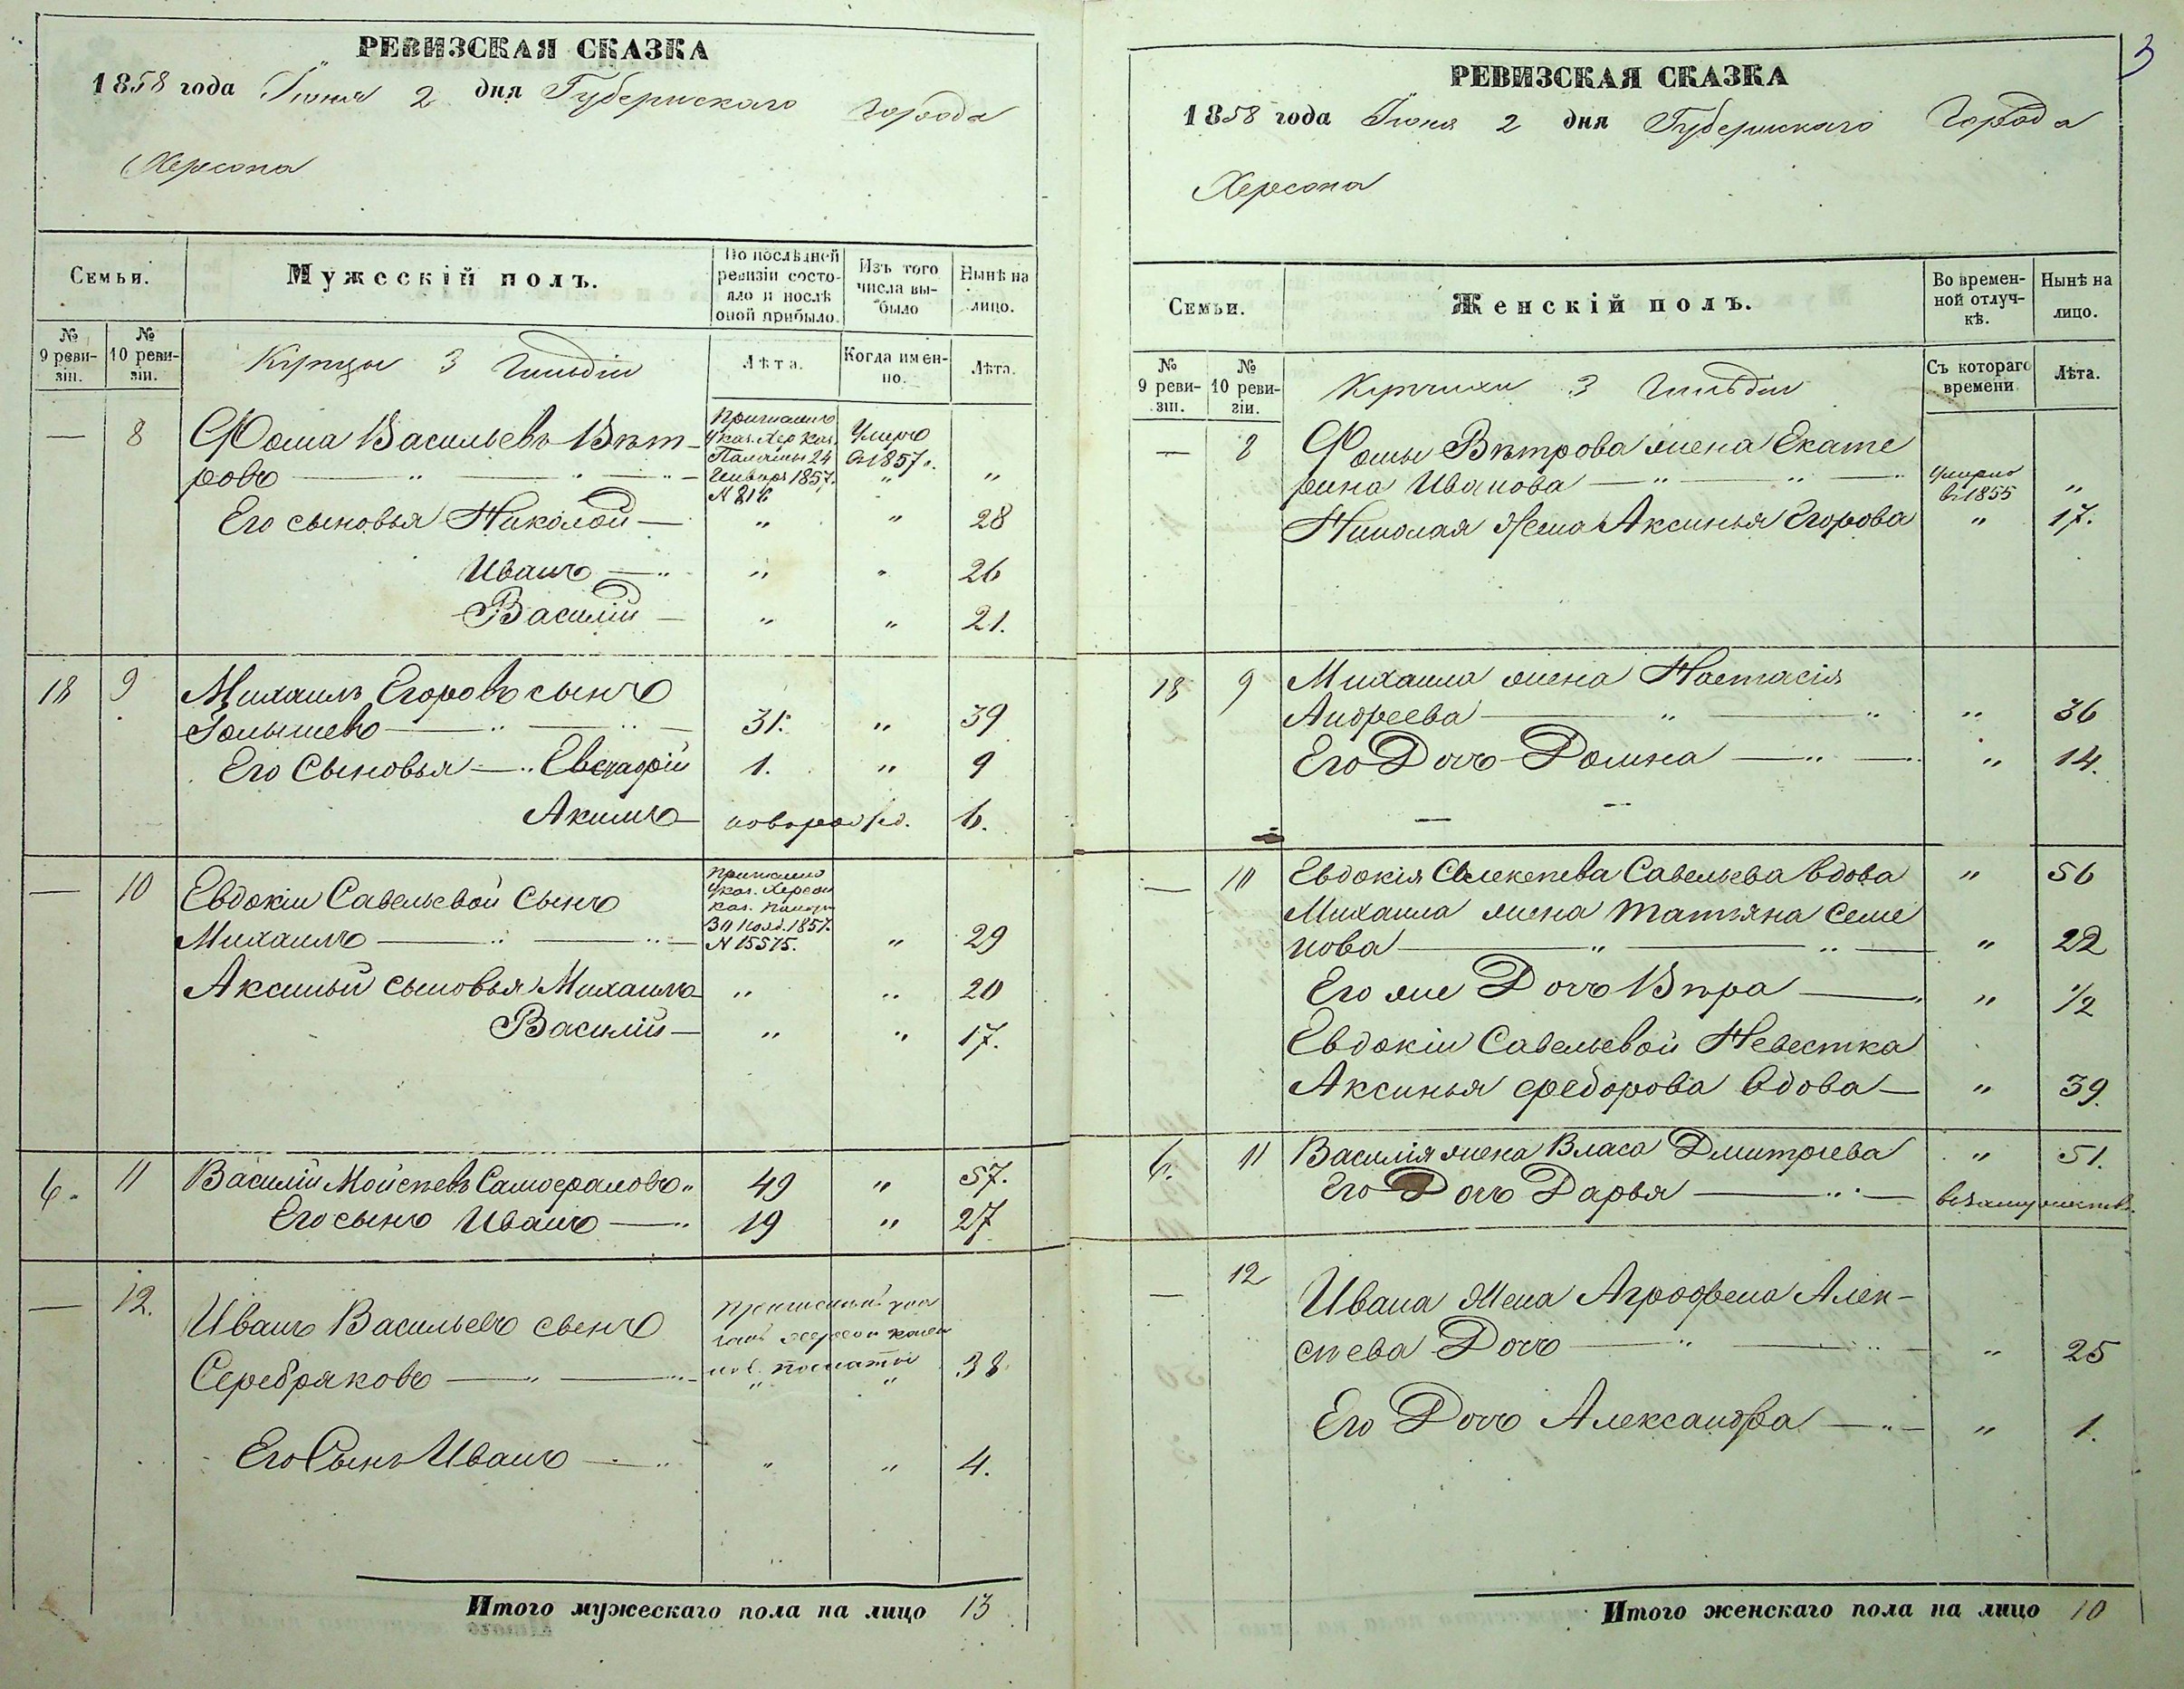 РЕВИЗСКАЯ СКАЗКА
1858 года Іюня 2 дня Губернскаго Города
Херсона
Семьи.
Мужескій полъ.
По послѣдней ревизіи состояло и послѣ оной прибыло.
Изъ того числа выбыло
Нынѣ на лицо.
№ 9 ревизіи.
№ 10 ревизіи.
Купцы 3 Гильдіи
Лѣта.
Когда именно.
Лѣта.
— 8 Фома Васильевъ Вѣт-
ровъ — " — " — " " "
Причислено Указ. Хер. Каз. Палаты 24 Генваря 1857. N 816
Умеръ въ 1857.
Его сыновья Николай — " " 28
Иванъ — " " " 26
Василій — " " 21.
18 9 Михаилъ Егоровъ сынъ
Голышевъ — " — " — 31. " 39
Его Сыновья — " Евстафій 1. " 9
Акимъ — новорожд. 6.
— 10 Евдокіи Савельевой Сынъ
Причислено Указ. Херсон. Каз. Палаты 30 Нояб. 1857. N 15575.
Михаилъ — " — " — " 29
Аксиньи сыновья Михаилъ " " 20
Василій — " " 17.
6. 11 Василій Моисѣевъ Самофаловъ " 49 " 57.
Его сынъ Иванъ — " 19 " 27
— 12. Иванъ Васильевъ сынъ
Серебряковъ — " — " " " 38
Его Сынъ Иванъ — " " " 4.
Итого мужескаго пола на лицо 13
3
РЕВИЗСКАЯ СКАЗКА
1858 года Іюня 2 дня Губернскаго Города
Херсона
Семьи.
Женскій полъ.
Во временной отлучкѣ.
Нынѣ на лицо.
№ 9 ревизіи.
№ 10 ревизіи.
Купчихи 3 Гильдіи
Съ котораго времени
Лѣта.
— 8 Фомы Вѣтрова жена Екате
рина Иванова — " — " — " "
въ 1855
Николая Жена Аксинья Егорова " 17.
18 9 Михаила жена Настасія
Андреева — " — " " 36
Его Дочь Домна — " — " " 14.
— 10 Евдокія Савельева Вдова " 56
Михаила жена Татьяна Семе
нова — " — " — " 22
Его же Дочь Вѣра — " " 1/2
Евдокіи Савельевой Невестка
Аксинья Федорова Вдова — " 39.
6. 11 Василія жена Власа Дмитріева " 51.
Его Дочь Дарья — " — въ замужествѣ.
— 12 Ивана Жена Аграфена Алек-
сѣева Дочь — " — " — " 25
Его Дочь Александра — " — " 1.
Итого женскаго пола на лицо 10